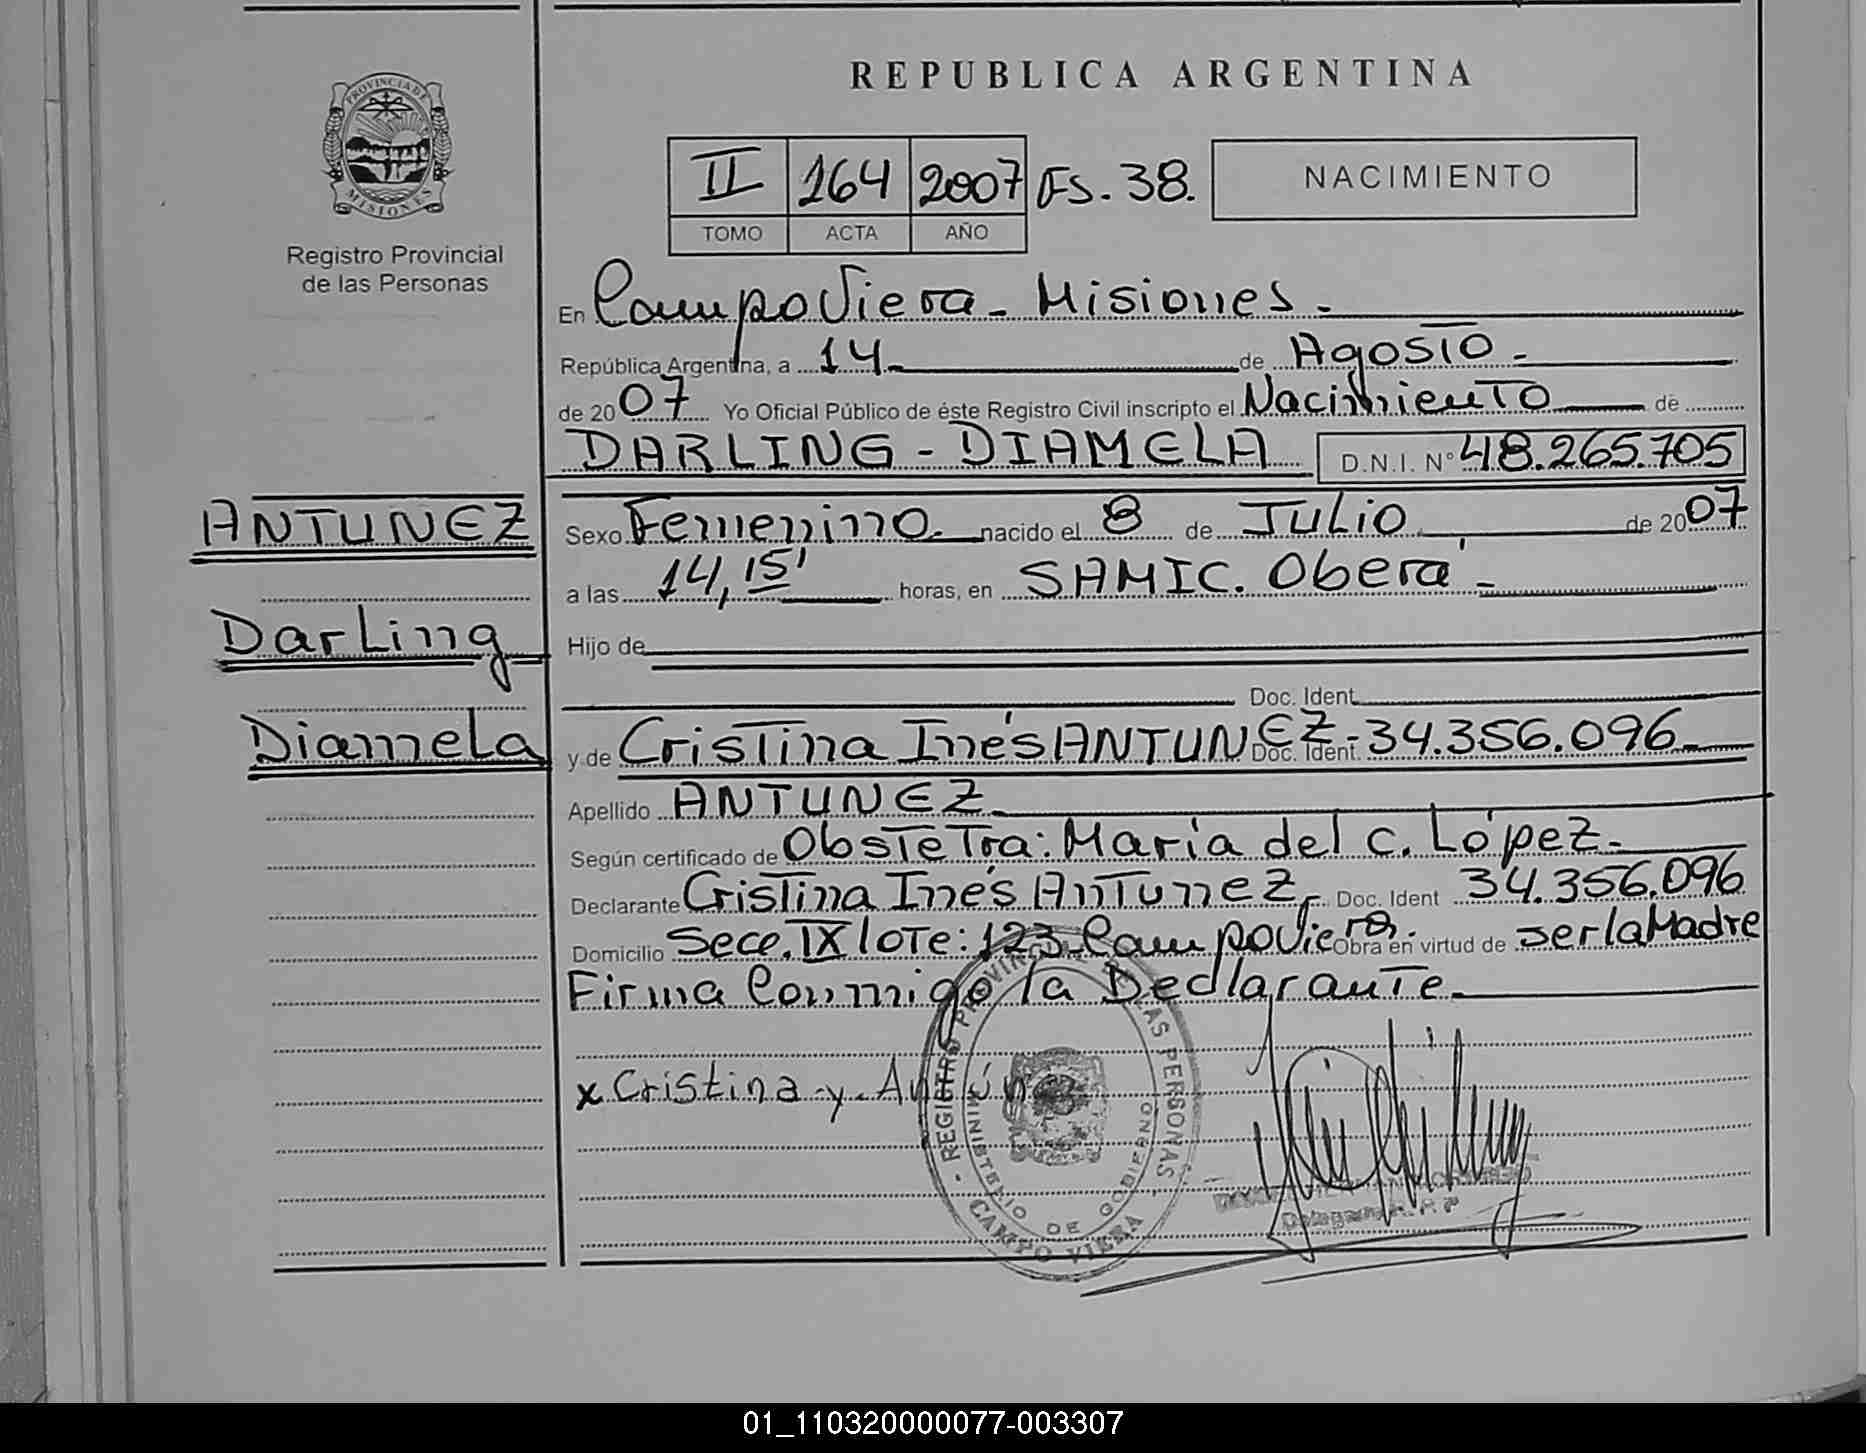 REPUBLICA ARGENTINA
PROVINCIA DE MISIONES
Registro Provincial
de las Personas
II 164 2007 FS. 38.
TOMO ACTA AÑO
NACIMIENTO
En Campo Viera - Misiones -
República Argentina, a 14 de Agosto -
de 2007 Yo Oficial Público de éste Registro Civil inscripto el Nacimiento de
DARLING - DIAMELA D.N.I. N° 48.265.705
ANTUNEZ
Darling
Diamela
Sexo Femenino. nacido el 8 de Julio de 2007
a las 14,15' horas, en SAMIC. Oberá -
Hijo de
Doc. Ident.
y de Cristina Inés ANTUNEZ - Doc. Ident. 34.356.096
Apellido ANTUNEZ
Según certificado de Obstetra: María del C. López -
Declarante Cristina Inés Antunez - Doc. Ident 34.356.096
Domicilio Secc. IX lote: 123 Campo Viera. Obra en virtud de ser la Madre
Firma Conmigo la Declarante
x Cristina y. Antún
- REGISTRO PROVINCIAL DE LAS PERSONAS -
MINISTERIO DE GOBIERNO
CAMPO VIERA
01_110320000077-003307